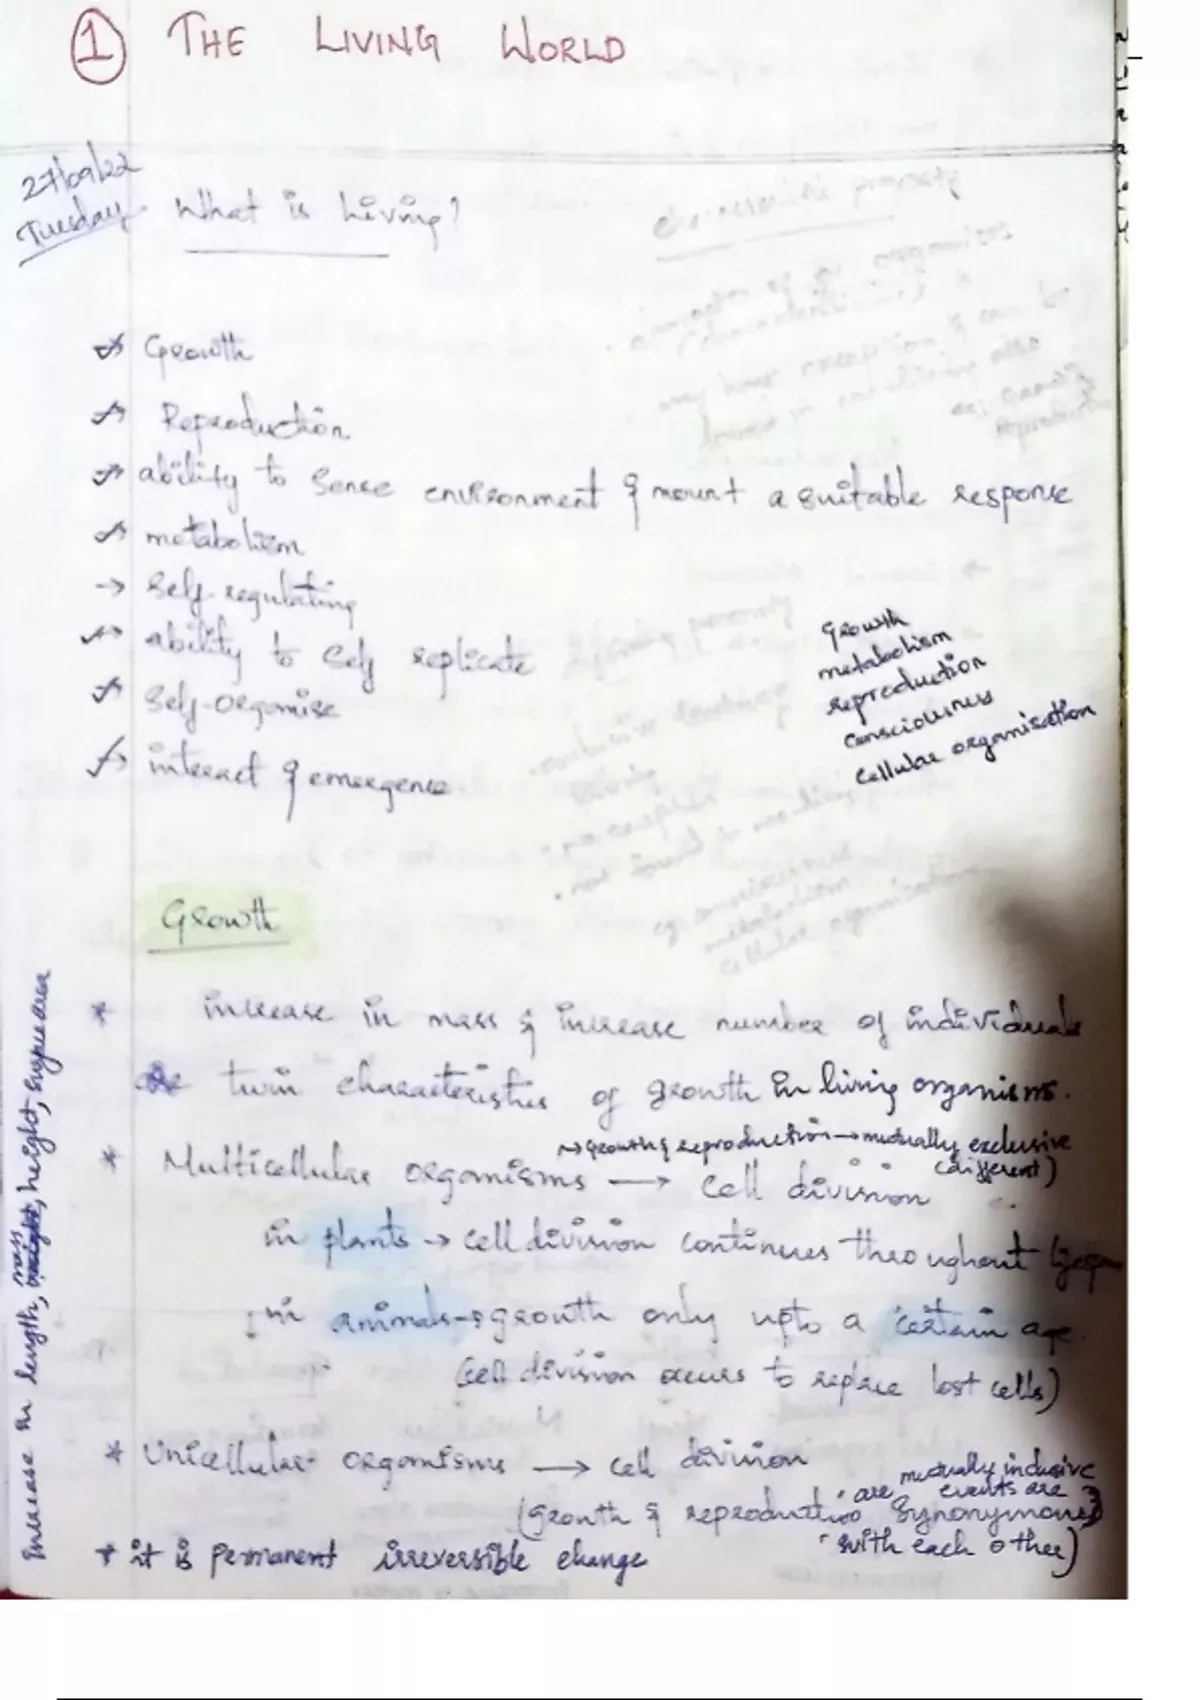 ① THE LIVING WORLD
27/09/22
Tuesday
What is Living?
→ Growth
→ Reproduction
→ ability to Sense environment & mount a suitable response
→ metabolism
→ Self-regulating
→ ability to Self replicate
→ Self-organise
→ interact & emergence
Growth
metabolism
reproduction
consciousness
cellular organisation
Growth
* increase in mass & increase number of individuals
are twin characteristics of growth in living organisms.
→ Growth & reproduction → mutually exclusive
(different)
* Multicellular organisms → cell division
in plants → cell division continues throughout lifespan
in animals → growth only upto a certain age.
(cell division occurs to replace lost cells)
* Unicellular organisms → cell division
(growth & reproduction are mutually inclusive
events are synonymous
with each other)
* it is permanent irreversible change
Increase in length, mass, height, surface area